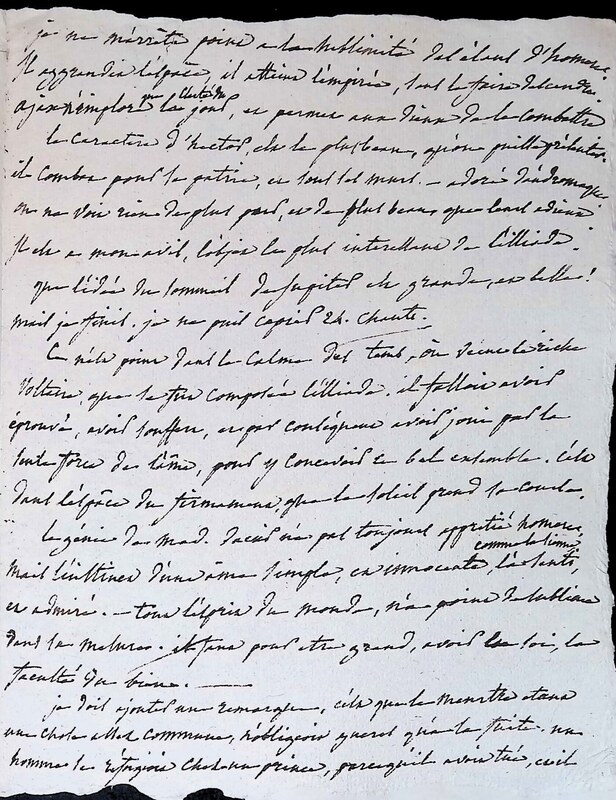 je ne m'arrête point a la sublimité de l'élans d'homere
Il aggrandis l'espace, il atteint l'empirée, tout le faire descendre.
ajax n'implore que la clarté du jour, et permet aux dieux de le combattre
le caractere d'hector, est le plus beau, qu'on puisse présenter
il combat pour sa patrie, et sous ses murs. — adoré d'andromaque
on ne voit rien de plus pur, et de plus beau, que leurs adieux
Il est a mon avis, l'objet le plus interessant de l'illiade.
que l'idée du sommeil de jupiter est grande, et belle!
mais je finis. je ne puis copier 24. chants.
Ce n'est point dans le calme des tems, où vécut le riche
Voltaire, que se fut composée l'illiade. il falloit avoir
éprouvé, avoir souffert, et par conséquent avoir joui par la
seule force de l'âme, pour y concevoir ce bel ensemble. c'est
dans l'espâce du firmament, que le soleil prend sa course.
le génie de mad. dacier n'a pas toujours apprétié homere,
mais l'instinct d'une âme simple, et innocente, comme la sienne, l'a senti,
et admiré. — tout l'esprit du monde, n'a point de sublime
dans sa mesure. il faut pour être grand, avoir la foi, la
faculté du bien. —
je dois ajouter une remarque, c'est que le meurtre etant
une chose assez commune, n'obligeoit gueres qu'a la fuite. un
homme se réfugioit chez un prince, parcequ'il avoit tué, et il